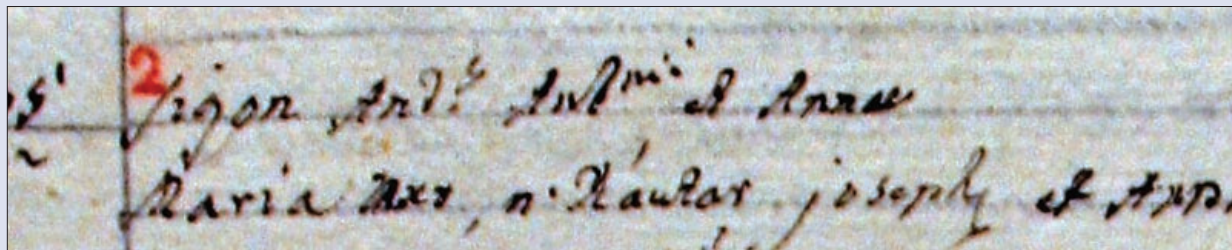 2 Sigon And.s Ant.nii et Annae
Maria Uxr, n. Kautar josephi et Ann